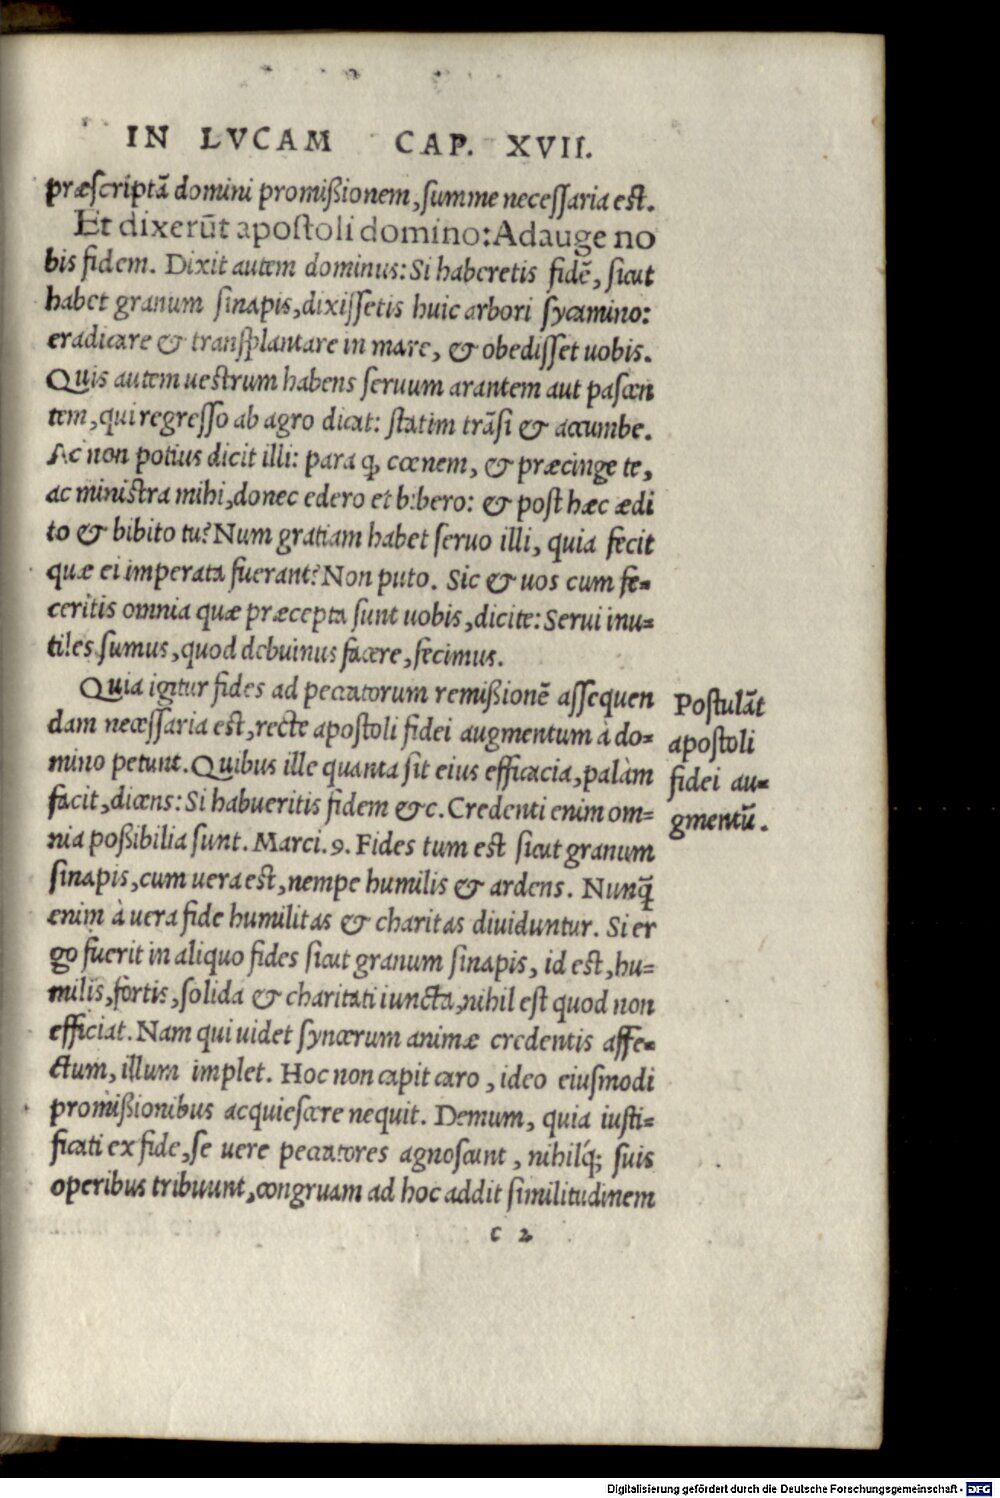 IN LVCAM CAP. XVII.
præscriptā domini promißionem, summe necessaria est.
Et dixerūt apostoli domino: Adauge no
bis fidem. Dixit autem dominus: Si haberetis fidē, sicut
habet granum sinapis, dixissetis huic arbori sycamino:
eradicare & transplantare in mare, & obedisset uobis.
Quis autem uestrum habens seruum arantem aut pascen
tem, qui regresso ab agro dicat: statim trāsi & accumbe.
Ac non potius dicit illi: para q̃ cœnem, & præcinge te,
ac ministra mihi, donec edero et bibero: & post hæc ædi
to & bibito tu? Num gratiam habet seruo illi, quia fecit
quæ ei imperata fuerant? Non puto. Sic & uos cum fe=
ceritis omnia quæ præcepta sunt uobis, dicite: Serui inu=
tiles sumus, quod debuimus facere, fecimus.
Quia igitur fides ad peccatorum remißionē assequen
dam necessaria est, recte apostoli fidei augmentum à do=
mino petunt. Quibus ille quanta sit eius efficacia, palàm
facit, dicens: Si habueritis fidem &c. Credenti enim om=
nia poßibilia sunt. Marci. 9. Fides tum est sicut granum
sinapis, cum uera est, nempe humilis & ardens. Nunq̃
enim à uera fide humilitas & charitas diuiduntur. Si er
go fuerit in aliquo fides sicut granum sinapis, id est, hu=
milis, fortis, solida & charitati iuncta, nihil est quod non
efficiat. Nam qui uidet syncerum animæ credentis affe=
ctum, illum implet. Hoc non capit caro, ideo eiusmodi
promißionibus acquiescere nequit. Demum, quia iusti=
ficati ex fide, se uere peccatores agnoscunt, nihilq́; suis
operibus tribuunt, congruam ad hoc addit similitudinem
c 2
Postulāt
apostoli
fidei au=
gmentū.
Digitalisierung gefördert durch die Deutsche Forschungsgemeinschaft - DFG